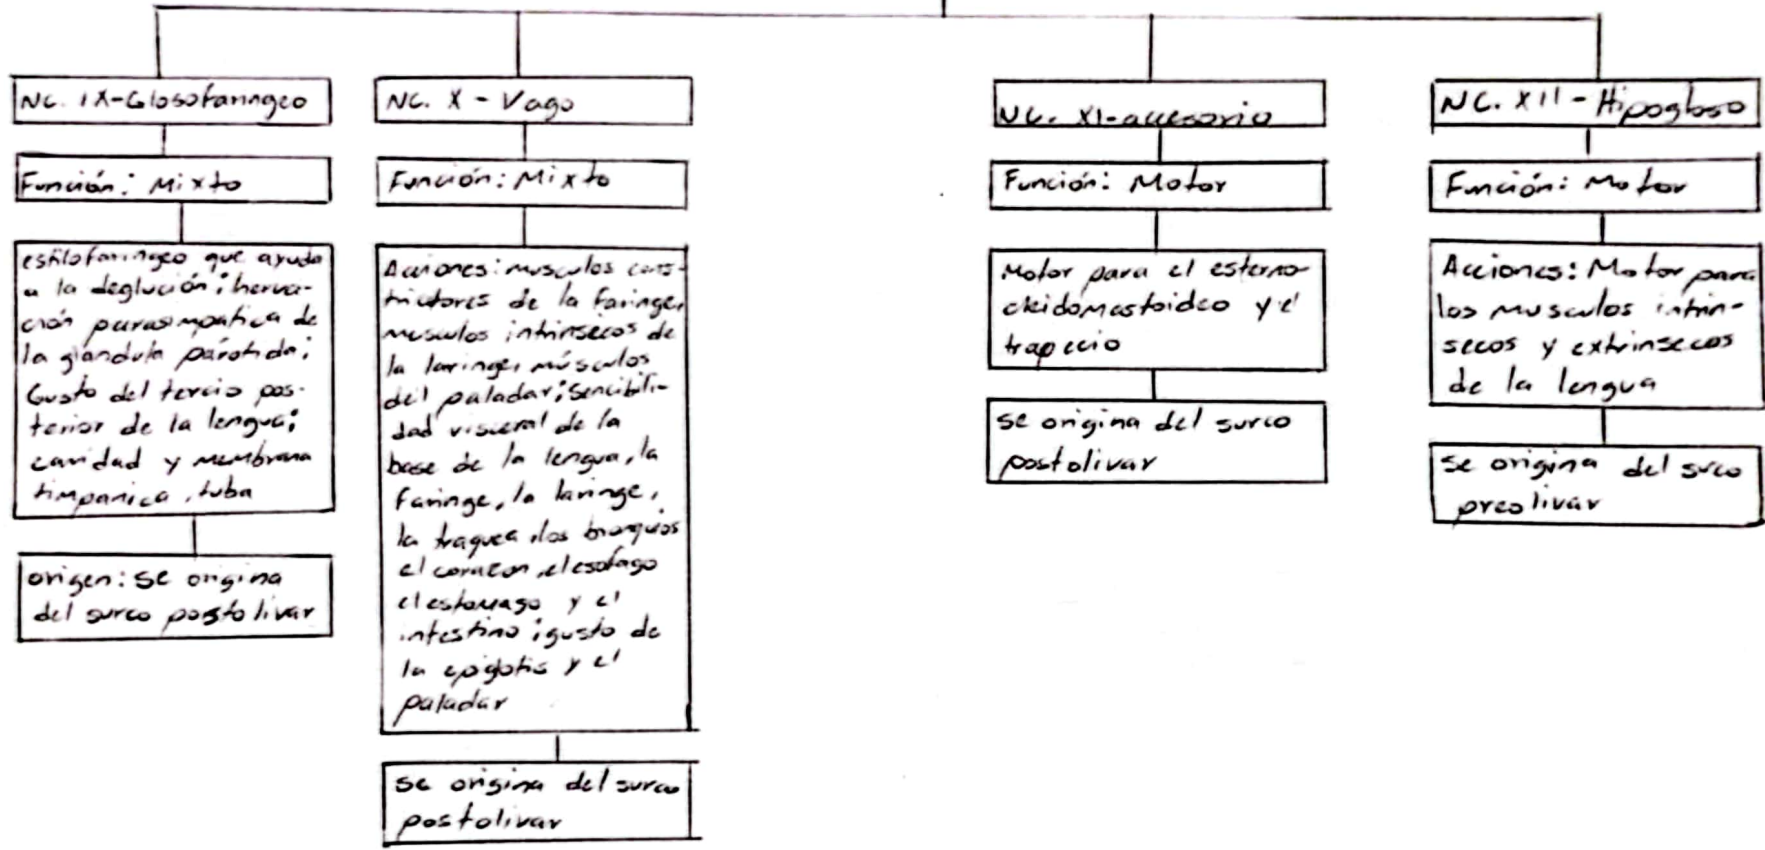 NC. IX-Glosofaringeo
Función: Mixto
estilofaringeo que ayuda
a la deglución; herva-
ción parasimpatica de
la glandula párotida;
Gusto del tercio pos-
terior de la lengua;
cavidad y membrana
timpanica, tuba
origen: se origina
del surco postolivar
NC. X - Vago
Función: Mixto
Acciones: musculos cons-
trictores de la faringe,
musculos intrinsecos de
la laringe, músculos
del paladar; Sencibili-
dad visceral de la
base de la lengua, la
faringe, la laringe,
la traquea, los bronquios
el corazon, el esofago
el estomago y el
intestino; gusto de
la epiglotis y el
paladar
se origina del surco
postolivar
NC. XI-accesorio
Función: Motor
Motor para el esterno-
cleidomastoideo y el
trapecio
se origina del surco
postolivar
NC. XII - Hipogloso
Función: Motor
Acciones: Motor para
los musculos intrin-
secos y extrinsecos
de la lengua
se origina del surco
preolivar